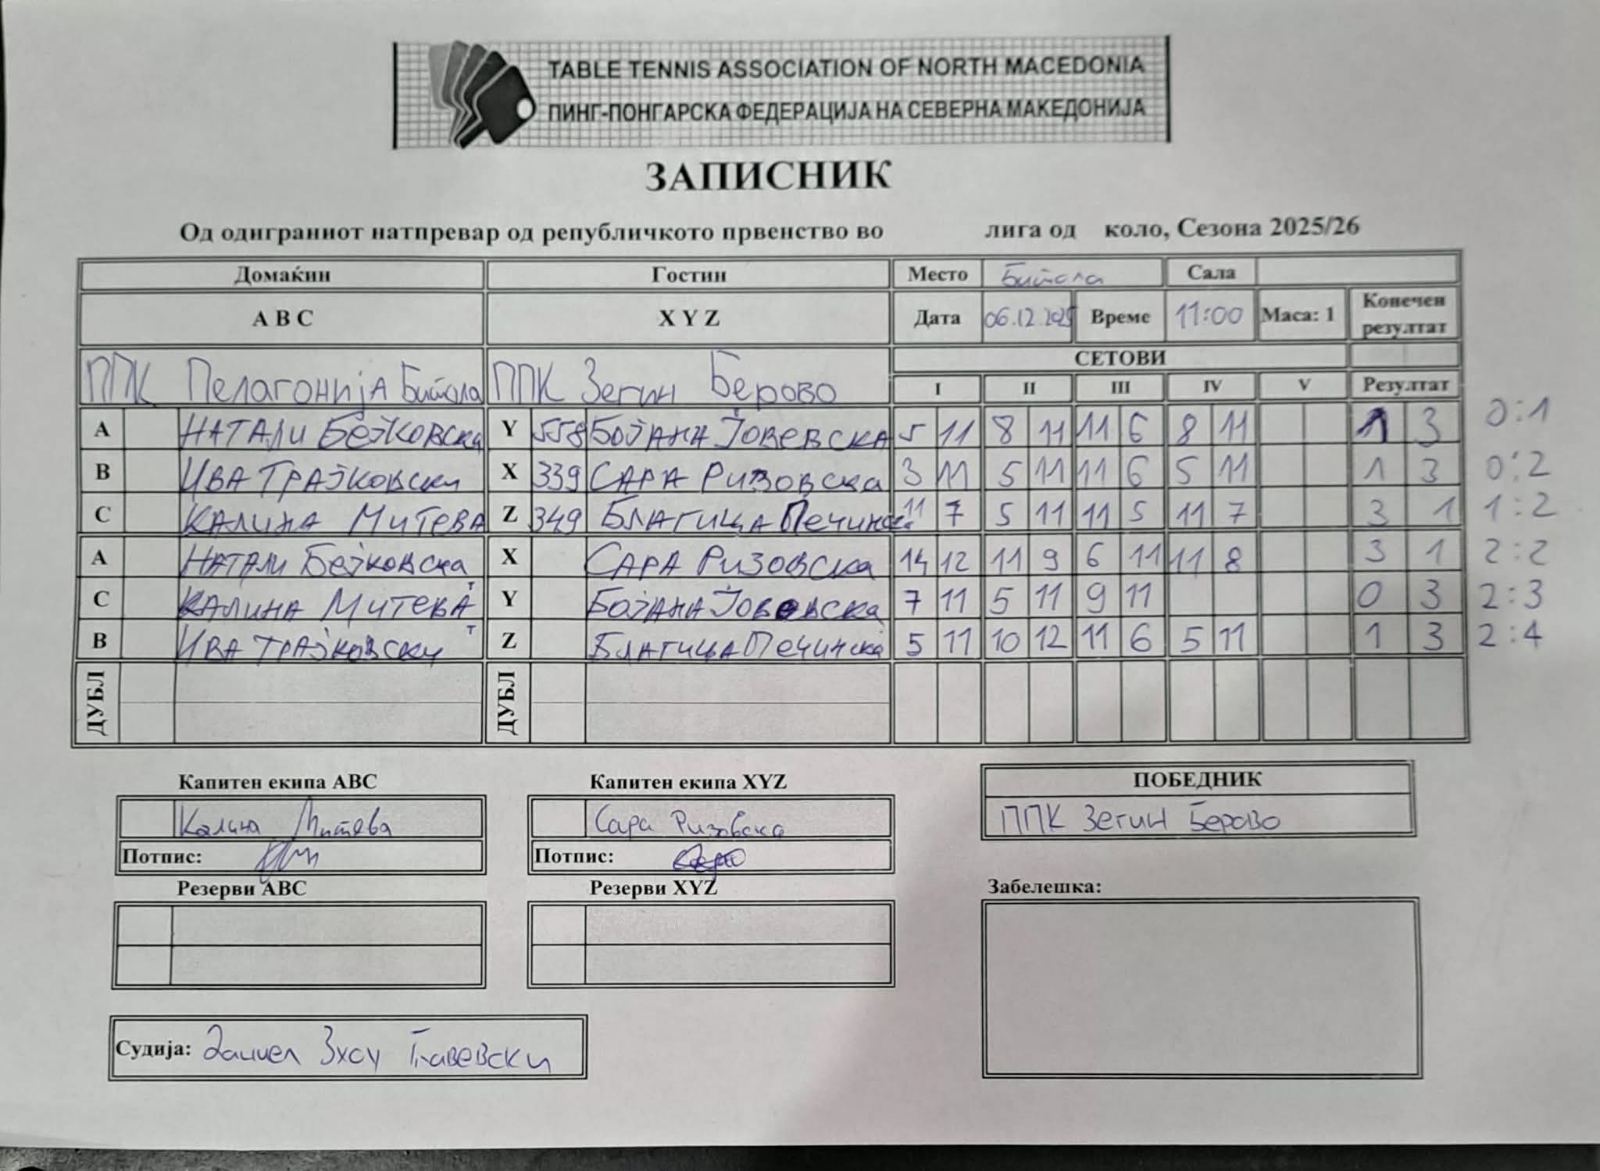 TABLE TENNIS ASSOCIATION OF NORTH MACEDONIA
ПИНГ-ПОНГАРСКА ФЕДЕРАЦИЈА НА СЕВЕРНА МАКЕДОНИЈА
ЗАПИСНИК
Од одиграниот натпревар од републичкото првенство во лига од коло, Сезона 2025/26
Домаќин Гостин Место Битола Сала
A B C X Y Z Дата 06.12.2025 Време 11:00 Маса: 1 Конечен резултат
ППК Пелагонија Битола ППК Зегин Берово СЕТОВИ
I II III IV V Резултат
A НАТАЛИ БЕЈКОВСКА Y 558 БОЈАНА ЈОВЕВСКА 5 11 8 11 11 6 8 11 1 3 0:1
B ИВА ТРАЈКОВСКИ X 339 САРА РИЗОВСКА 3 11 5 11 11 6 5 11 1 3 0:2
C КАЛИНА МИТЕВА Z 349 БЛАГИЦА Печинска 11 7 5 11 11 5 11 7 3 1 1:2
A НАТАЛИ БЕЈКОВСКА X САРА РИЗОВСКА 14 12 11 9 6 11 11 8 3 1 2:2
C КАЛИНА МИТЕВА Т Y БОЈАНА ЈОВЕВСКА 7 11 5 11 9 11 0 3 2:3
B ИВА ТРАЈКОВСКИ Т Z БЛАГИЦА Печинска 5 11 10 12 11 6 5 11 1 3 2:4
ДУБЛ ДУБЛ
Капитен екипа ABC Капитен екипа XYZ ПОБЕДНИК
Калина Митева Сара Ризовска ППК Зегин Берово
Потпис: Потпис:
Резерви ABC Резерви XYZ Забелешка:
Судија: Даниел